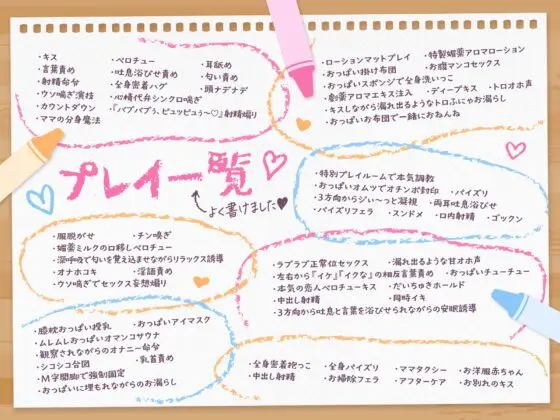 ・キス
・ベロチュー
・耳舐め
・言葉責め
・吐息浴びせ責め
・匂い責め
・射精台台
・全身密着ハグ
・頭ナデナデ
・ウソ喘ぎ演技
・心情代弁シンクロ喘ぎ
・カウントダウン
・『バブバブぅ、ピュッピュぅ～♡』射精煽り
・ママの分身魔法
・ローションマットプレイ
・特製媚薬アロマローション
・おっぱい掛け布団
・お腹マンコセックス
・おっぱいスポンジで全身洗いっこ
・劇薬アロマエキス注入
・ディープキス
・トロオホ声
・キスしながら漏れ出るようなトロふにゃお漏らし
・おっぱいお布団で一緒におねんね
プレイ一覧
よく書けました♥
・特別プレイルームで本気調教
・おっぱいオムツでオチンポ封印
・パイズリ
・3方向からジぃ～っと凝視
・両耳吐息浴びせ
・パイズリフェラ
・スンドメ
・口内射精
・ゴックン
・服脱がせ
・チン嗅ぎ
・媚薬ミルクの口移しベロチュー
・深呼吸で匂いを覚え込ませながらリラックス誘導
・オナホコキ
・淫語責め
・ウソ喘ぎでセックス妄想煽り
・ラブラブ正常位セックス
・漏れ出るような甘オホ声
・左右から『イケ』『イクな』の相反言葉責め
・おっぱいチューチュー
・本気の恋人ベロチューキス
・だいちゅきホールド
・中出し射精
・同時イキ
・3方向から吐息と言葉を浴びせられながらの安眠誘導
・膝枕おっぱい授乳
・おっぱいアイマスク
・ムレムレおっぱいオマンコサウナ
・観察されながらのオナニー台台
・シコシコ合図
・乳首責め
・M字開脚で強制固定
・おっぱいに埋もれながらのお漏らし
・全身密着抱っこ
・全身パイズリ
・ママタクシー
・お洋服赤ちゃん
・中出し射精
・お掃除フェラ
・アフターケア
・お別れのキス